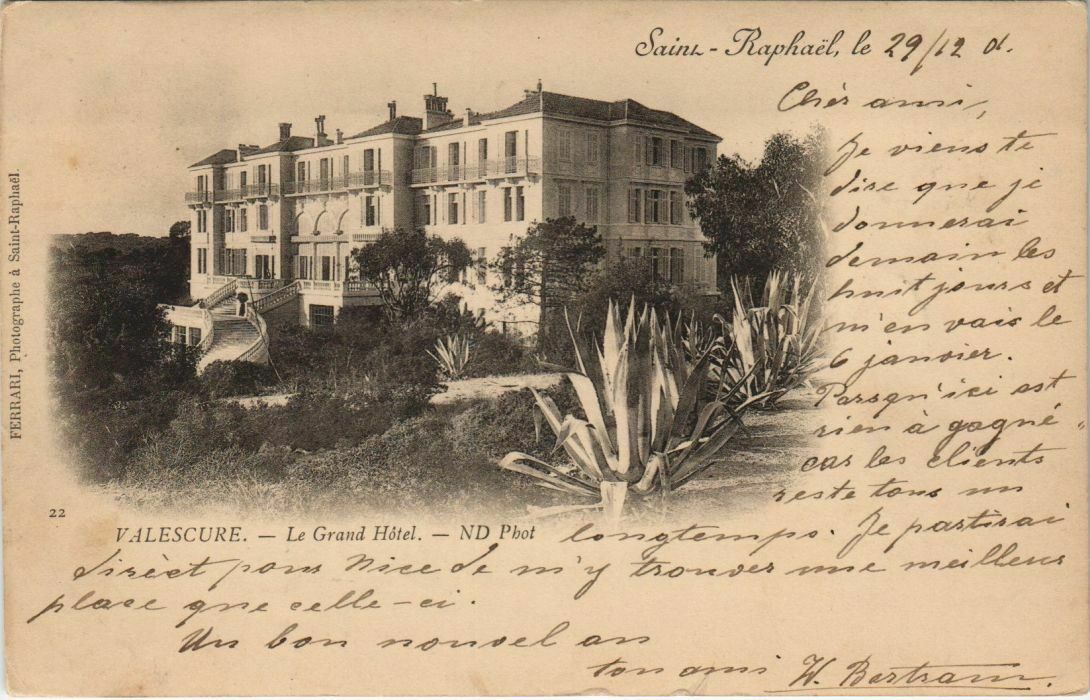 Saint-Raphaël, le 29/12 01.
Chèr ami,
Je viens te
dire que je
donnerai
demain les
huit jours et
m'en vais le
6 janvier.
Parsqu'ici est
rien à gagné
car les clients
reste tous un
longtemps. Je partirai
dirèct pour Nice de m'y trouver une meilleur
place que celle-ci.
Un bon nouvel an
ton ami W. Bertram.
FERRARI, Photographe à Saint-Raphaël.
22
VALESCURE. — Le Grand Hôtel. — ND Phot